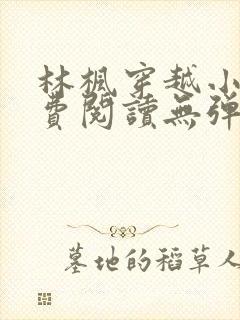 林楓穿越小
費閱讀無彈
墓地的稻草人